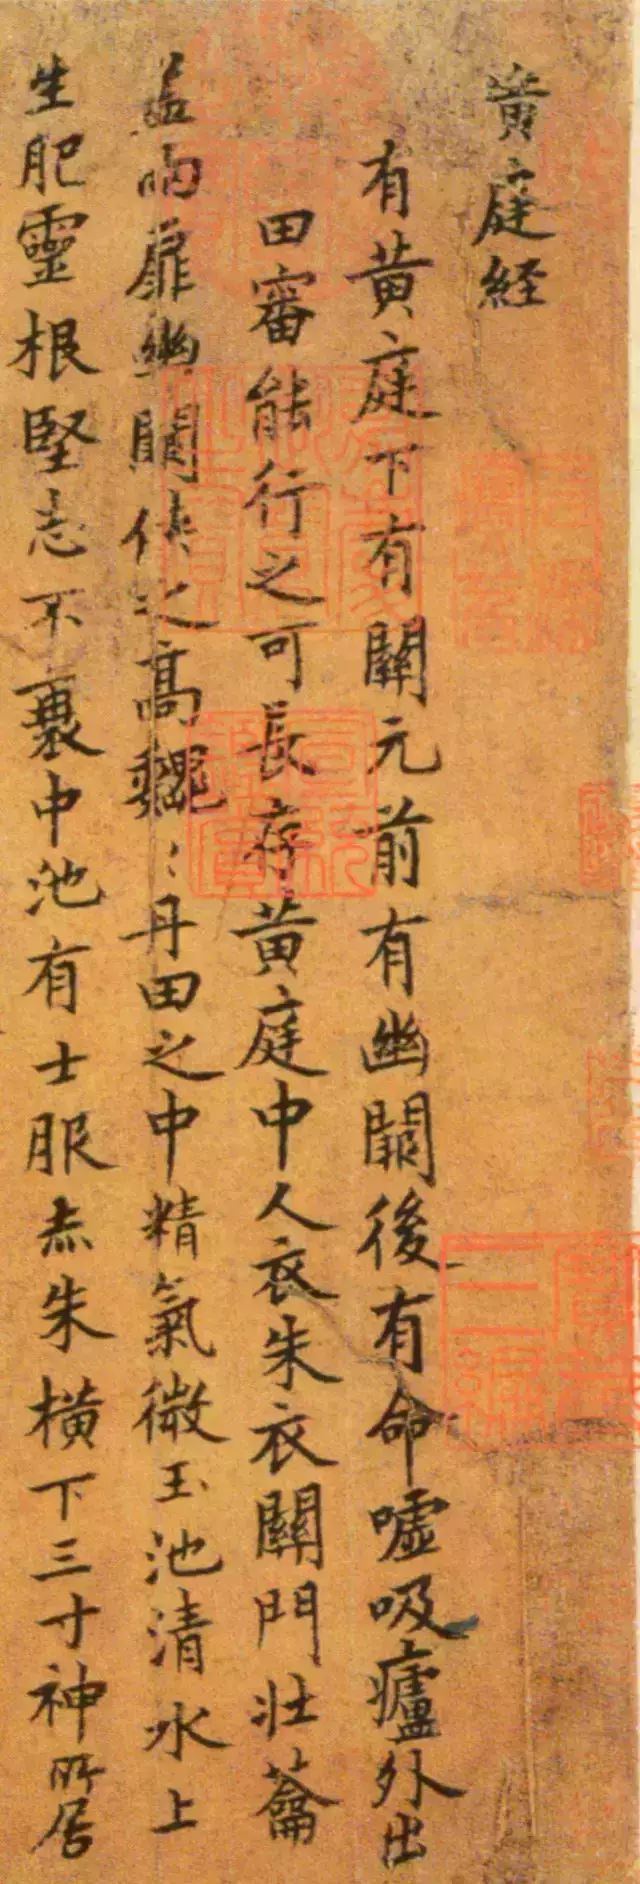 黄庭経
有黄庭下有關元前有幽闕後有命噓吸廬外出
田審能行之可長存黄庭中人衣朱衣關門壯蘥
盖兩扉幽闕俠之高巍〻丹田之中精氣微玉池清水上
生肥靈根堅志不衰中池有士服赤朱横下三寸神所居